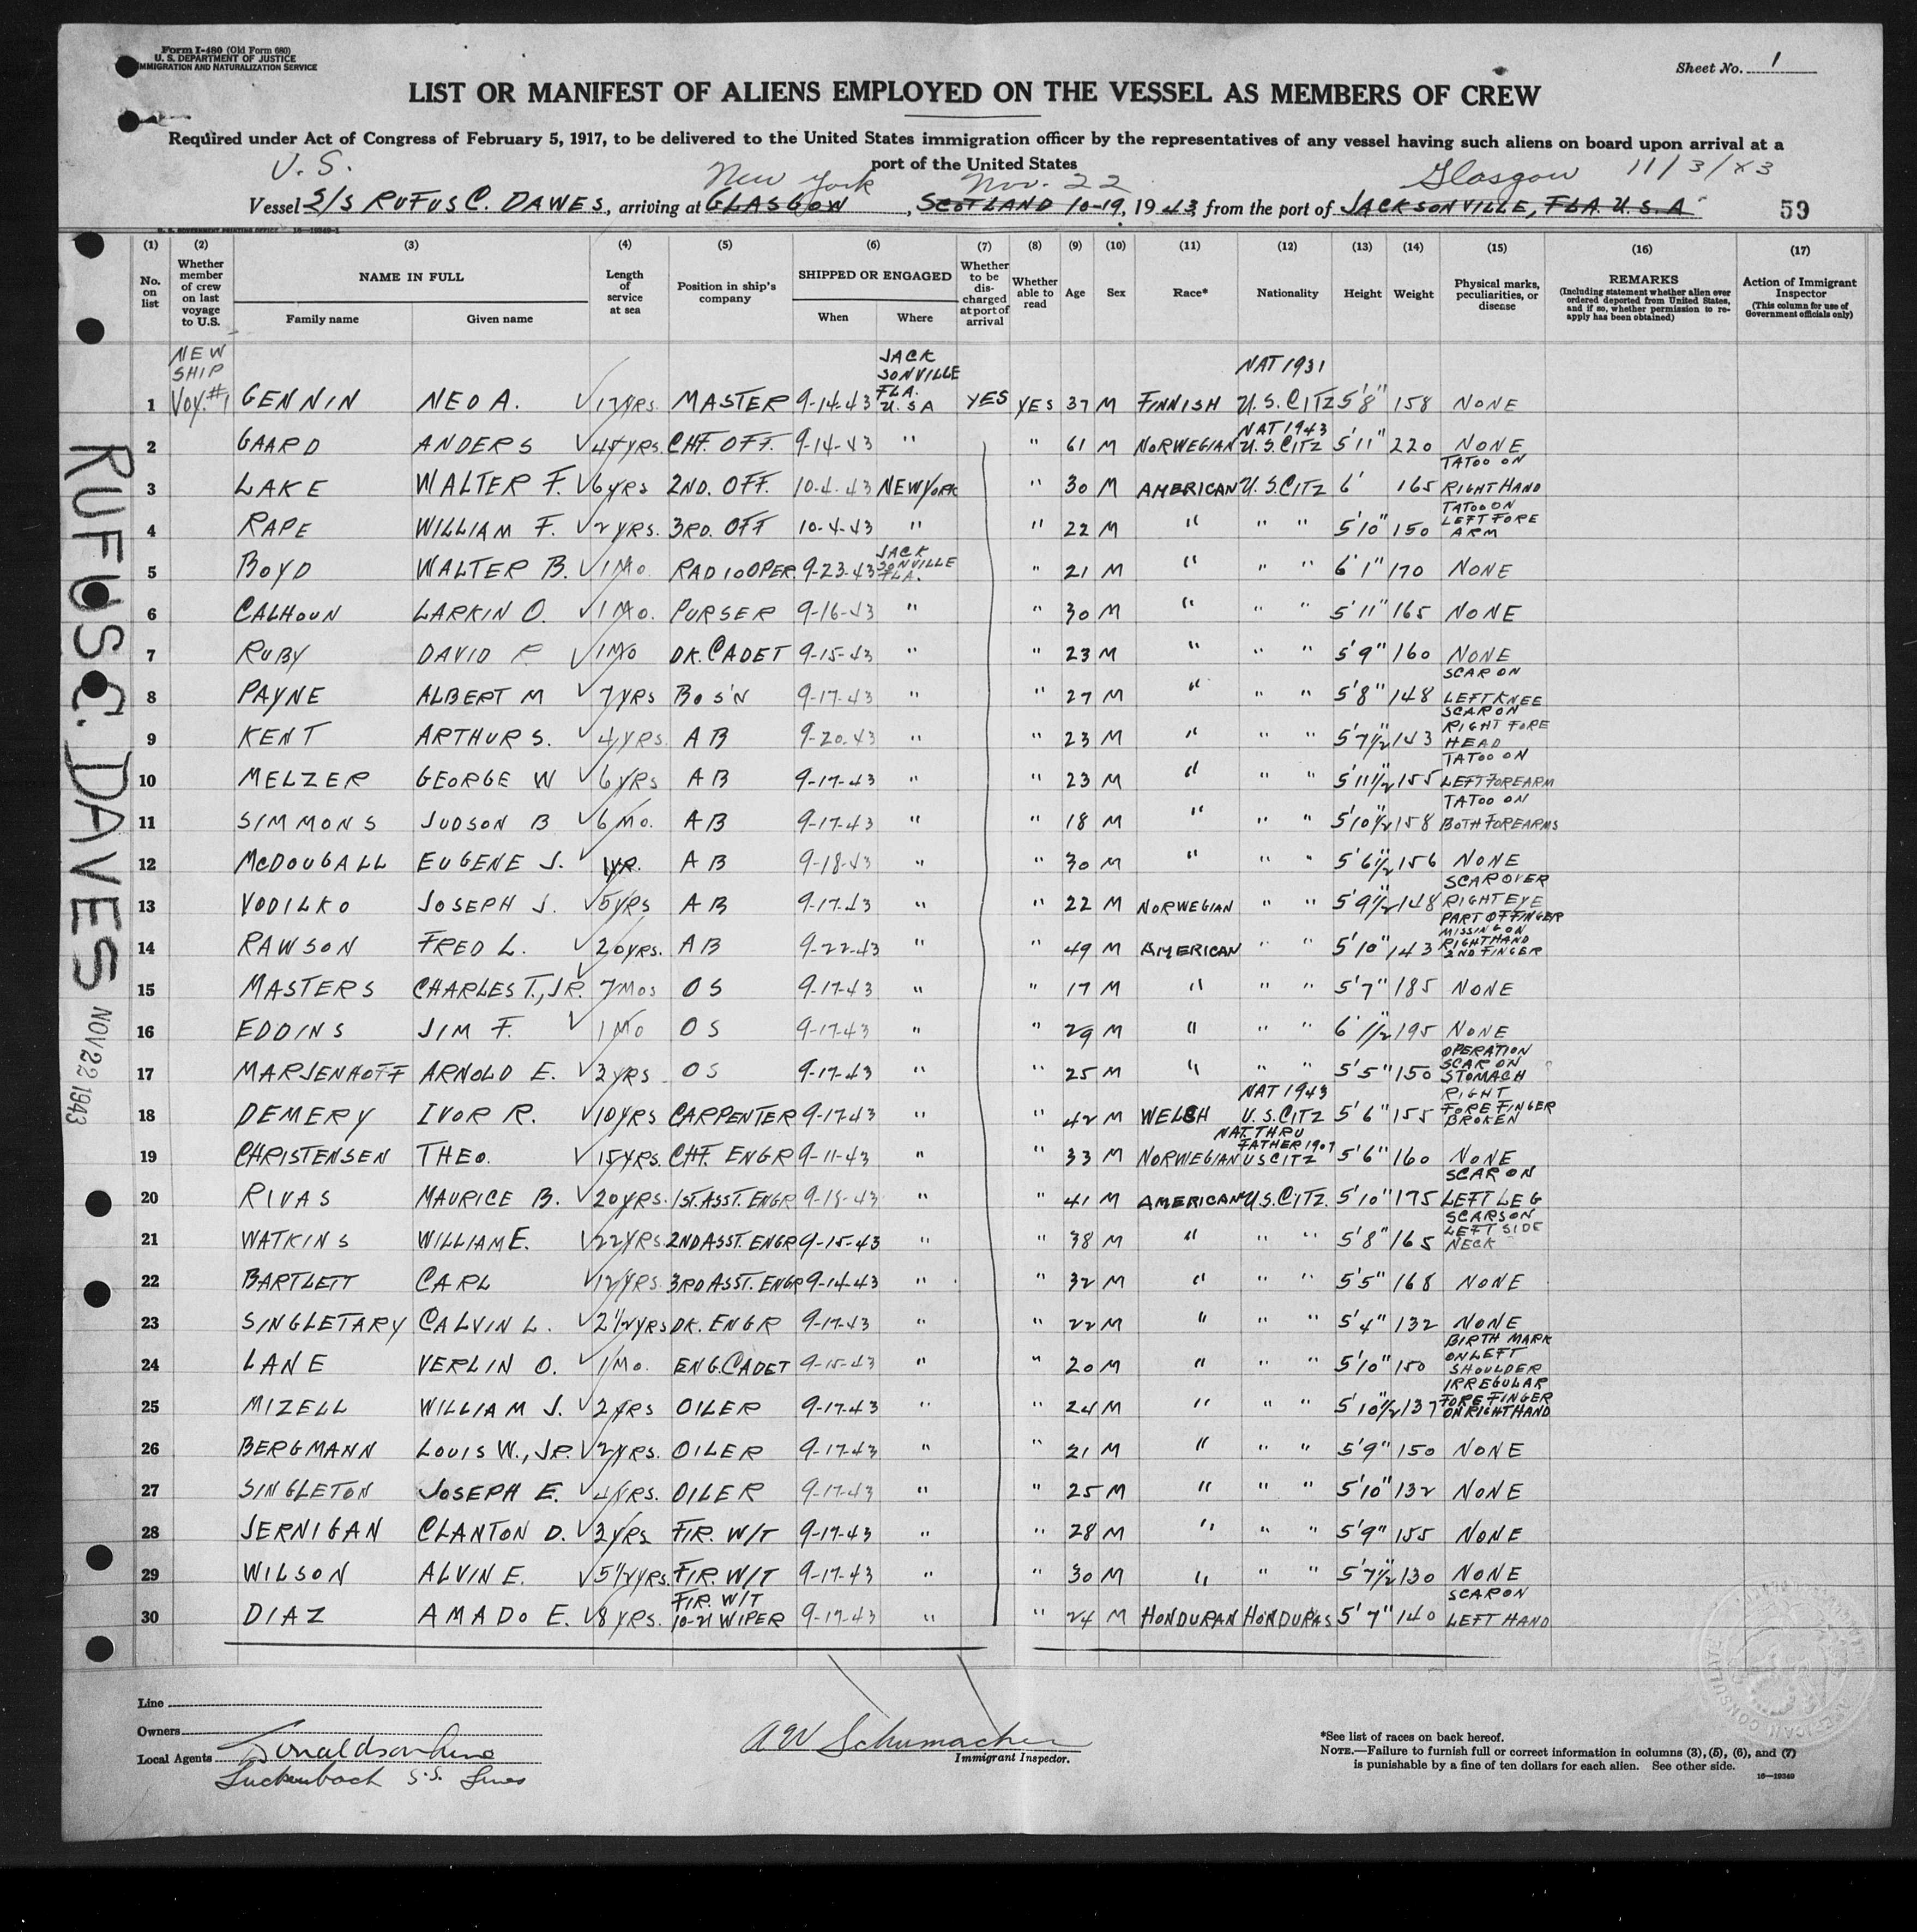 Form I-480 (Old Form 680)
U. S. DEPARTMENT OF JUSTICE
IMMIGRATION AND NATURALIZATION SERVICE
Sheet No. 1
LIST OR MANIFEST OF ALIENS EMPLOYED ON THE VESSEL AS MEMBERS OF CREW
Required under Act of Congress of February 5, 1917, to be delivered to the United States immigration officer by the representatives of any vessel having such aliens on board upon arrival at a
port of the United States
U. S. New York Nov. 22 Glasgow 11/3/43
Vessel S/S RUFUS C. DAWES, arriving at GLASGOW, SCOTLAND 10-19, 1943, from the port of JACKSONVILLE, FLA. U.S.A.
59
U. S. GOVERNMENT PRINTING OFFICE 16—19349-1
(1) (2) (3) (4) (5) (6) (7) (8) (9) (10) (11) (12) (13) (14) (15) (16) (17)
No. on list
Whether member of crew on last voyage to U.S.
NAME IN FULL
Family name
Given name
Length of service at sea
Position in ship's company
SHIPPED OR ENGAGED
When
Where
Whether to be discharged at port of arrival
Whether able to read
Age
Sex
Race*
Nationality
Height
Weight
Physical marks, peculiarities, or disease
REMARKS
(Including statement whether alien ever ordered deported from United States, and if so, whether permission to reapply has been obtained)
Action of Immigrant Inspector
(This column for use of Government officials only)
1 NEW SHIP VOY. #1 GENNIN NEO A. 17 YRS. MASTER 9-14-43 JACKSONVILLE FLA. U.S.A YES YES 37 M FINNISH NAT 1931 U.S. CITZ 5'8" 158 NONE
2 GAARD ANDERS 45 YRS. CHF. OFF. 9-14-43 " " 61 M NORWEGIAN NAT 1943 U.S. CITZ 5'11" 220 NONE
3 LAKE WALTER F. 6 YRS 2ND. OFF. 10-4-43 NEW YORK " 30 M AMERICAN U.S. CITZ 6' 165 TATOO ON RIGHT HAND
4 RAPE WILLIAM F. 2 YRS. 3RD. OFF 10-4-43 " " 22 M " " " 5'10" 150 TATOO ON LEFT FORE ARM
5 BOYD WALTER B. 1 MO RADIO OPER. 9-23-43 JACKSONVILLE FLA. " 21 M " " " 6'1" 170 NONE
6 CALHOUN LARKIN O. 1 MO. PURSER 9-16-43 " " 30 M " " " 5'11" 165 NONE
7 RUBY DAVID R 1 MO DK. CADET 9-15-43 " " 23 M " " " 5'9" 160 NONE
8 PAYNE ALBERT M 7 YRS BOS'N 9-17-43 " " 27 M " " " 5'8" 148 SCAR ON LEFT KNEE
9 KENT ARTHUR S. 4 YRS. AB 9-20-43 " " 23 M " " " 5'7 1/2" 143 SCAR ON RIGHT FORE HEAD
10 MELZER GEORGE W 6 YRS AB 9-17-43 " " 23 M " " " 5'11 1/2" 155 TATOO ON LEFT FOREARM
11 SIMMONS JUDSON B 6 MO. AB 9-17-43 " " 18 M " " " 5'10 1/2" 158 TATOO ON BOTH FOREARMS
12 McDOUGALL EUGENE J. 1 YR. AB 9-18-43 " " 30 M " " " 5'6 1/2" 156 NONE
13 VODILKO JOSEPH J. 5 YRS AB 9-17-43 " " 22 M NORWEGIAN " " 5'9 1/2" 148 SCAR OVER RIGHT EYE
14 RAWSON FRED L. 20 YRS. AB 9-22-43 " " 49 M AMERICAN " " 5'10" 143 PART OF FINGER MISSING ON RIGHT HAND 2ND FINGER
15 MASTERS CHARLES T., JR. 7 MOS OS 9-17-43 " " 17 M " " " 5'7" 185 NONE
16 EDDINS JIM F. 1 MO OS 9-17-43 " " 29 M " " " 6' 1/2" 195 NONE
17 MARJENHOFF ARNOLD E. 3 YRS OS 9-17-43 " " 25 M " " " 5'5" 150 OPERATION SCAR ON STOMACH
18 DEMERY IVOR R. 10 YRS CARPENTER 9-17-43 " " 42 M WELSH NAT 1943 U.S. CITZ 5'6" 155 RIGHT FORE FINGER BROKEN
19 CHRISTENSEN THEO. 15 YRS. CHF. ENGR 9-11-43 " " 33 M NORWEGIAN NAT. THRU FATHER 1907 US CITZ 5'6" 160 NONE
20 RIVAS MAURICE B. 20 YRS. 1ST. ASST. ENGR 9-18-43 " " 41 M AMERICAN U.S. CITZ. 5'10" 175 SCAR ON LEFT LEG
21 WATKINS WILLIAM E. 22 YRS. 2ND ASST. ENGR 9-15-43 " " 38 M " " " 5'8" 165 SCARS ON LEFT SIDE NECK
22 BARTLETT CARL 12 YRS. 3RD ASST. ENGR 9-14-43 " " 32 M " " " 5'5" 168 NONE
23 SINGLETARY CALVIN L. 2 1/2 YRS DK. ENGR 9-17-43 " " 22 M " " " 5'4" 132 NONE
24 LANE VERLIN O. 1 MO. ENG. CADET 9-15-43 " " 20 M " " " 5'10" 150 BIRTH MARK ON LEFT SHOULDER
25 MIZELL WILLIAM J. 2 YRS OILER 9-17-43 " " 24 M " " " 5'10 1/2" 137 IRREGULAR FORE FINGER ON RIGHT HAND
26 BERGMANN LOUIS W., JR. 2 YRS. OILER 9-17-43 " " 21 M " " " 5'9" 150 NONE
27 SINGLETON JOSEPH E. 4 YRS. OILER 9-17-43 " " 25 M " " " 5'10" 132 NONE
28 JERNIGAN CLANTON D. 3 YRS FIR. W/T 9-17-43 " " 28 M " " " 5'9" 155 NONE
29 WILSON ALVIN E. 5 1/2 YRS. FIR. W/T 9-17-43 " " 30 M " " " 5'7 1/2" 130 NONE
30 DIAZ AMADO E. 8 YRS. FIR. W/T 10-21 WIPER 9-17-43 " " 24 M HONDURAN HONDURAS 5'7" 140 SCAR ON LEFT HAND
RUFUS C. DAVES NOV 22 1943
Line
Owners
Local Agents Donaldson Line
Luckenbach S.S. Lines
A W Schumacher
Immigrant Inspector.
*See list of races on back hereof.
NOTE.—Failure to furnish full or correct information in columns (3), (5), (6), and (7)
is punishable by a fine of ten dollars for each alien. See other side.
16—19349
AMERICAN CONSULATE